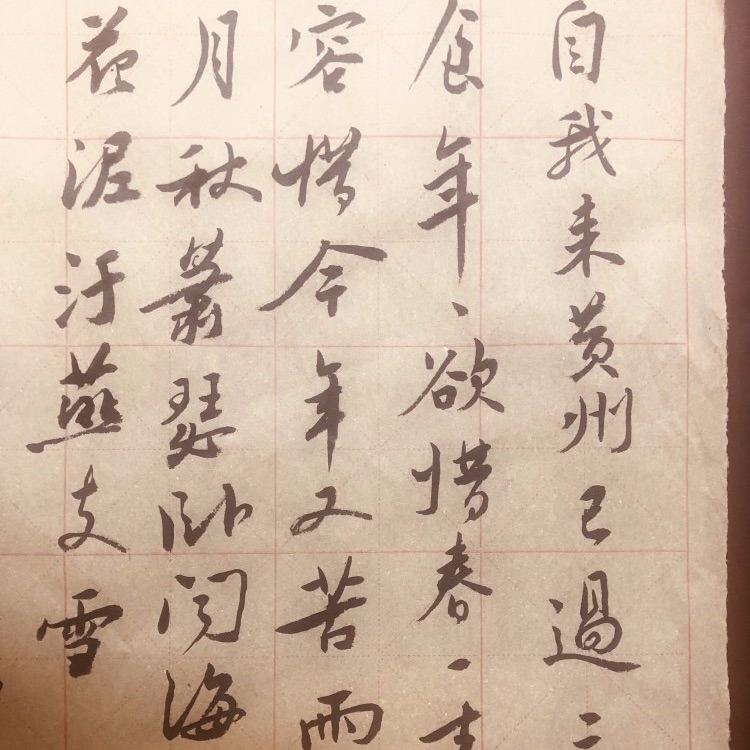 自我来黄州已過
食年、欲惜春、
容惜今年又苦雨
月秋蕭瑟卧聞海
花泥汙燕支雪